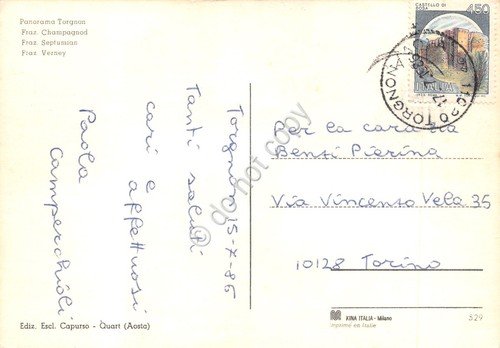 Panorama Torgnon
Fraz. Champagnod
Fraz. Septumian
Fraz. Verney
Torgnon, 15-7-86
Tanti saluti
cari e affettuosi
Paola
Camperchioli
CASTELLO DI
450
11020 TORGNON
Per la cara zia
Benti Pierina
Via Vincenzo Vela 35
10128 Torino
Ediz. Escl. Capurso - Quart (Aosta)
KINA ITALIA - Milano
Imprimé en Italie
529
© do not copy